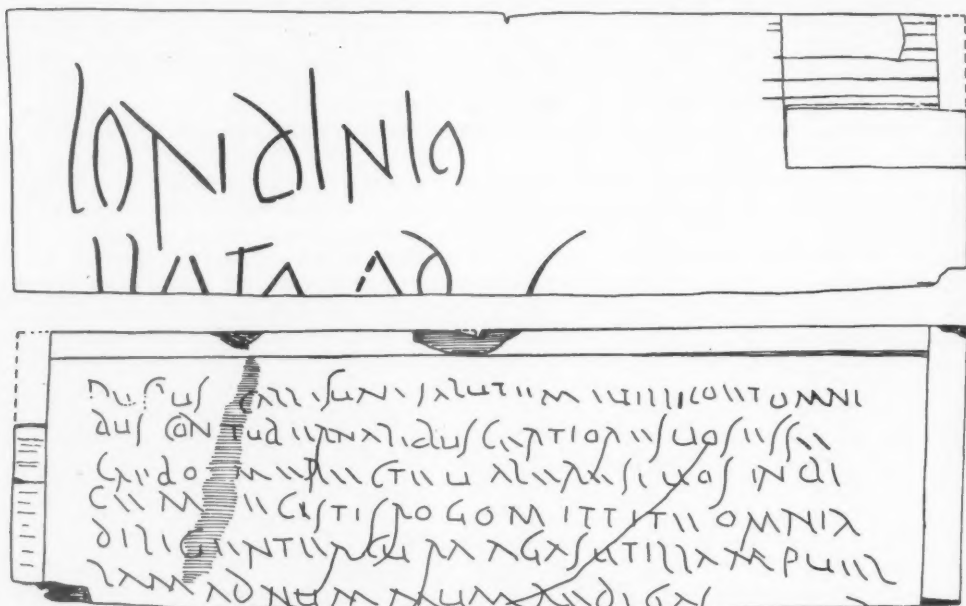 LONDINIO
RUFUS CALLISUNI SALUTEM EPILLICO ET OMNI
BUS CONTUBERNALIBUS CERTIORES UOS ESSE
CREDO ME RECTE UALERE SI UOS INDI
CEM FECISTIS ROGO MITTITE OMNIA
DILIGENTER CURA AGAS UT ILLAM PUEL
LAM AD NUMMUM REDIGAS